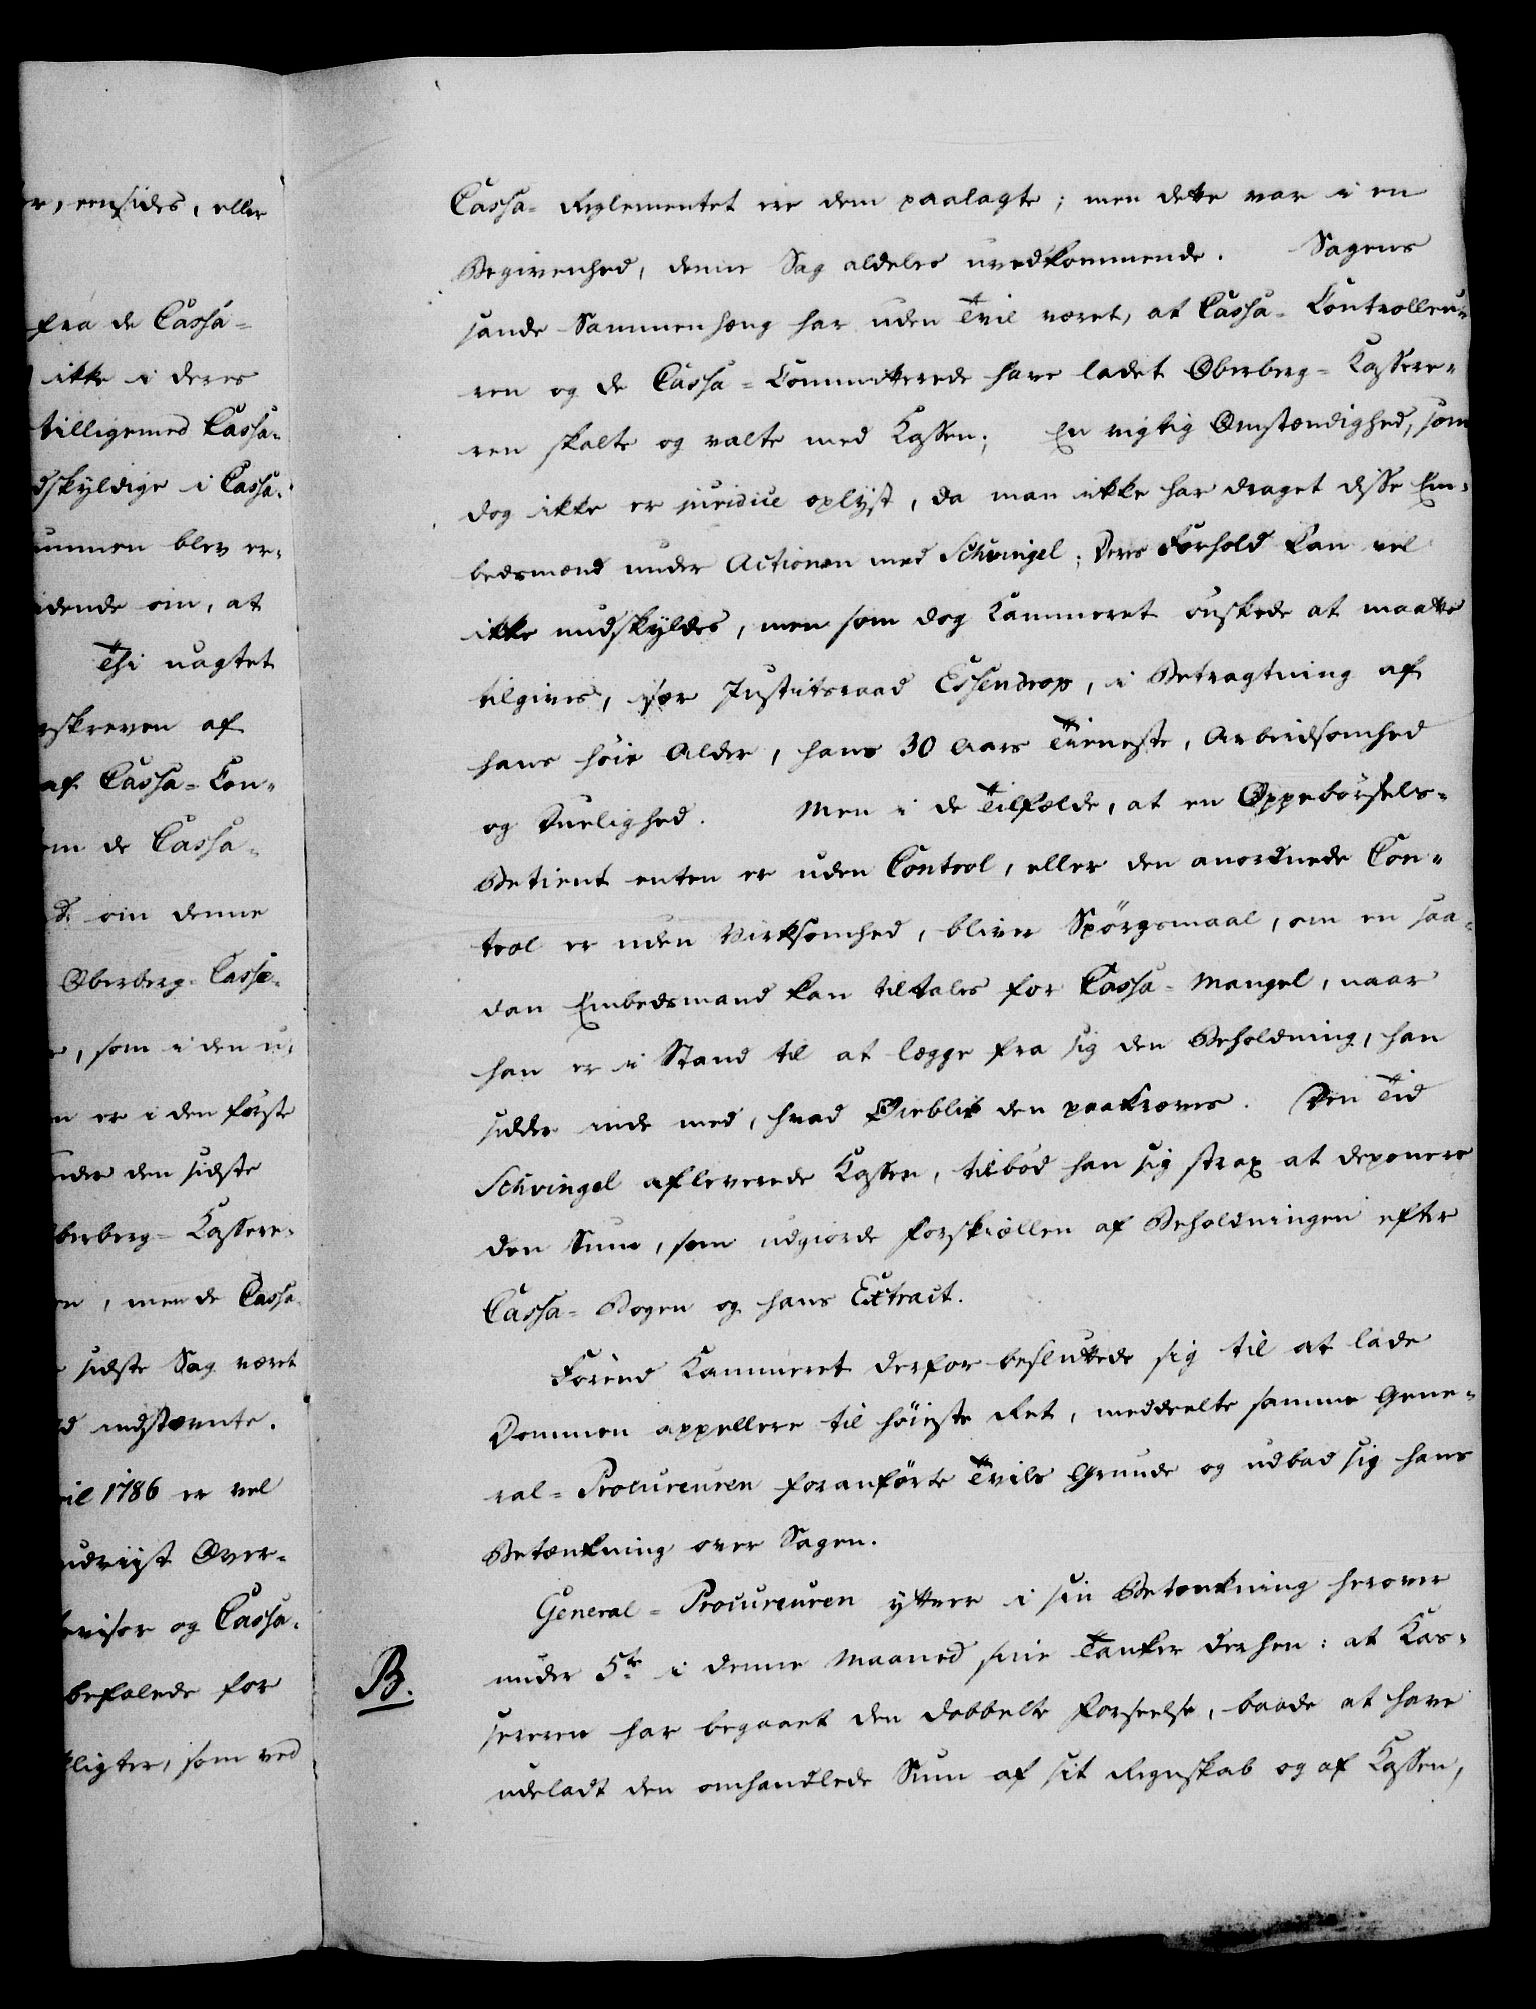 er, eensides, eller
fra de Cassa-
ikke i deres
tilligemed Cassa-
dskyldige i Cassa-
ummen blev er-
idende om, at
Thi uagtet
rskreven af
af Cassa-Con-
om de Cassa-
om denne
Oberberg-Casse-
, som i den u-
n er i den første
nder den sidste
berberg-Kassere-
n, men de Cassa-
sidste Sag været
d indstævnte.
ril 1786 er vel
udviist Over-
evisor og Cassa-
befalede for
pligter, som ved
Cassa-Reglementet ere dem paalagte; men dette var i en
Begivenhed, denne Sag aldeles uvedkommende. Sagens
sande Sammenhæng har uden Tvil været, at Cassa-Controlleu-
ren og de Cassa-Committerede have ladet Oberberg-Kassere-
ren skalte og valte med Kassen; En vigtig Omstændighed, som
dog ikke er juridice oplyst, da man ikke har draget disse Em-
bedsmænd under Actionen med Schvingel; Deres Forhold kan vel
ikke undskyldes, men som dog Kammeret ønskede at maatte
tilgives, især Justitsraad Essendrop, i Betragtning af
hans høie Alder, hans 30 Aars Tieneste, Arbeidsomhed
og Duelighed. Men i de Tilfælde, at en Oppebørsels-
Betient enten er uden Control, eller den anordnede Con-
trol er uden Virksomhed, bliver Spørgsmaal, om en saa-
dan Embedsmand kan tiltales for Cassa-Mangel, naar
han er i Stand til at lægge fra sig den Beholdning, han
sidder inde med, hvad Øieblik den paakræves. Den Tid
Schvingel afleverede Kassen, tilbød han sig strax at deponere
den Sum, som udgiorde Forskiællen af Beholdningen efter
Cassa-Bogen og hans Extract.
Forend Kammeret derfor besluttede sig til at lade
Dommen appellere til høieste Ret, meddeelte samme Gene-
ral-Procureuren foranførte Tvils Grunde og udbad sig hans
Betænkning over Sagen.
General-Procureuren yttrer i sin Betænkning herover
B.
under 5te i denne Maaned sine Tanker derhen: at Kas-
sereren har begaaet den dobbelte Forseelse, baade at have
udeladt den omhandlede Sum af sit Regnskab og af Kassen,